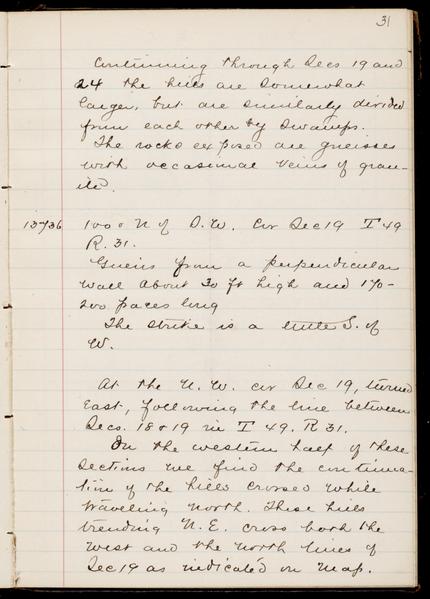 31
Continuing through Secs 19 and
24 the hills are somewhat
larger, but are similarly divided
from each other by swamps.
The rocks exposed are gneisses
with occasional veins of gran-
ite.
13736 1000 N of S.W. cor Sec 19 T 49
R. 31.
Gneiss from a perpendicular
wall about 30 ft high and 170-
200 paces long
The strike is a little S. of
W.
At the N. W. cor Sec 19, turned
East, following the line between
Secs. 18 & 19 in T 49. R 31.
On the western half of these
sections we find the continua-
tion of the hills crossed while
traveling north. These hills
trending N.E. cross both the
west and the north lines of
Sec 19 as indicated on map.